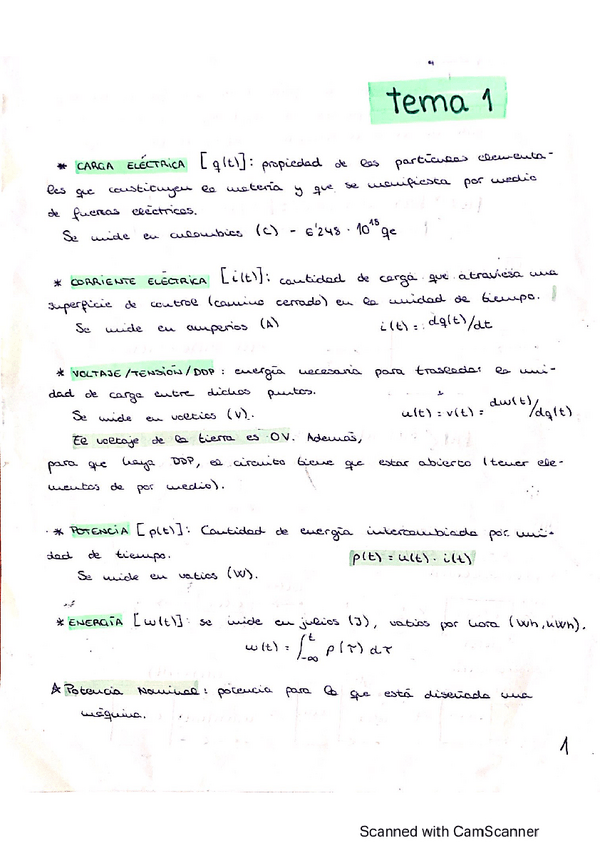 tema 1
* CARGA ELÉCTRICA [q(t)]: propiedad de las partículas elementa-
les que constituyen la materia y que se manifiesta por medio
de fuerzas eléctricas.
Se mide en culombios (C) - 6'248 · 10¹⁸ qe
* CORRIENTE ELÉCTRICA [i(t)]: cantidad de carga que atraviesa una
superficie de control (camino cerrado) en la unidad de tiempo.
Se mide en amperios (A) i(t) = dq(t)/dt
* VOLTAJE/TENSIÓN/DDP: energía necesaria para trasladar la uni-
dad de carga entre dichos puntos.
Se mide en voltios (V). u(t) = v(t) = dw(t)/dq(t)
El voltaje de la tierra es 0V. Además,
para que haya DDP, el circuito tiene que estar abierto (tener ele-
mentos de por medio).
* POTENCIA [p(t)]: Cantidad de energía intercambiada por uni-
dad de tiempo. p(t) = u(t) · i(t)
Se mide en vatios (W).
* ENERGÍA [w(t)] se mide en julios (J), vatios por hora (Wh, kWh).
w(t) = ∫_{-∞}^{t} p(τ) dτ
* Potencia Nominal: potencia para la que está diseñada una
máquina.
1
Scanned with CamScanner